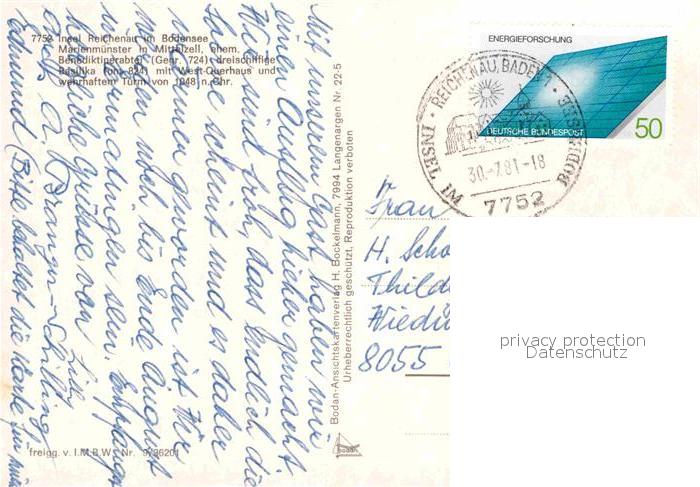 7752 Insel Reichenau im Bodensee
Marienmünster in Mittelzell, ehem.
Benediktinerabtei (Gegr. 724) dreischiffige
Basilika (um 824) mit West-Querhaus und
wehrhaftem Turm von 1048 n. Chr.
Mit unserem Gast haben wir
eine Ausflug hieher gemacht
Wir sind froh, dass endlich die
Sonne scheint und es daher
warm geworden ist. Wir
werden noch bis Ende August
in sein. Empfangen
herzliche Grüsse von
und (Bitte behaltet die Karte für mich
freigg. v. I.M.B.W. Nr. 9/36201
Bodan-Ansichtskartenverlag H. Bockelmann, 7994 Langenargen Nr. 22-5
Urheberrechtlich geschützt, Reproduktion verboten
bodan
ENERGIEFORSCHUNG
DEUTSCHE BUNDESPOST
50
INSEL REICHENAU, BADEN 1
IM BODENSEE
30.-7.81-18
7752
Frau
H. Scho
Thild
Wiedi
8055
privacy protection
Datenschutz